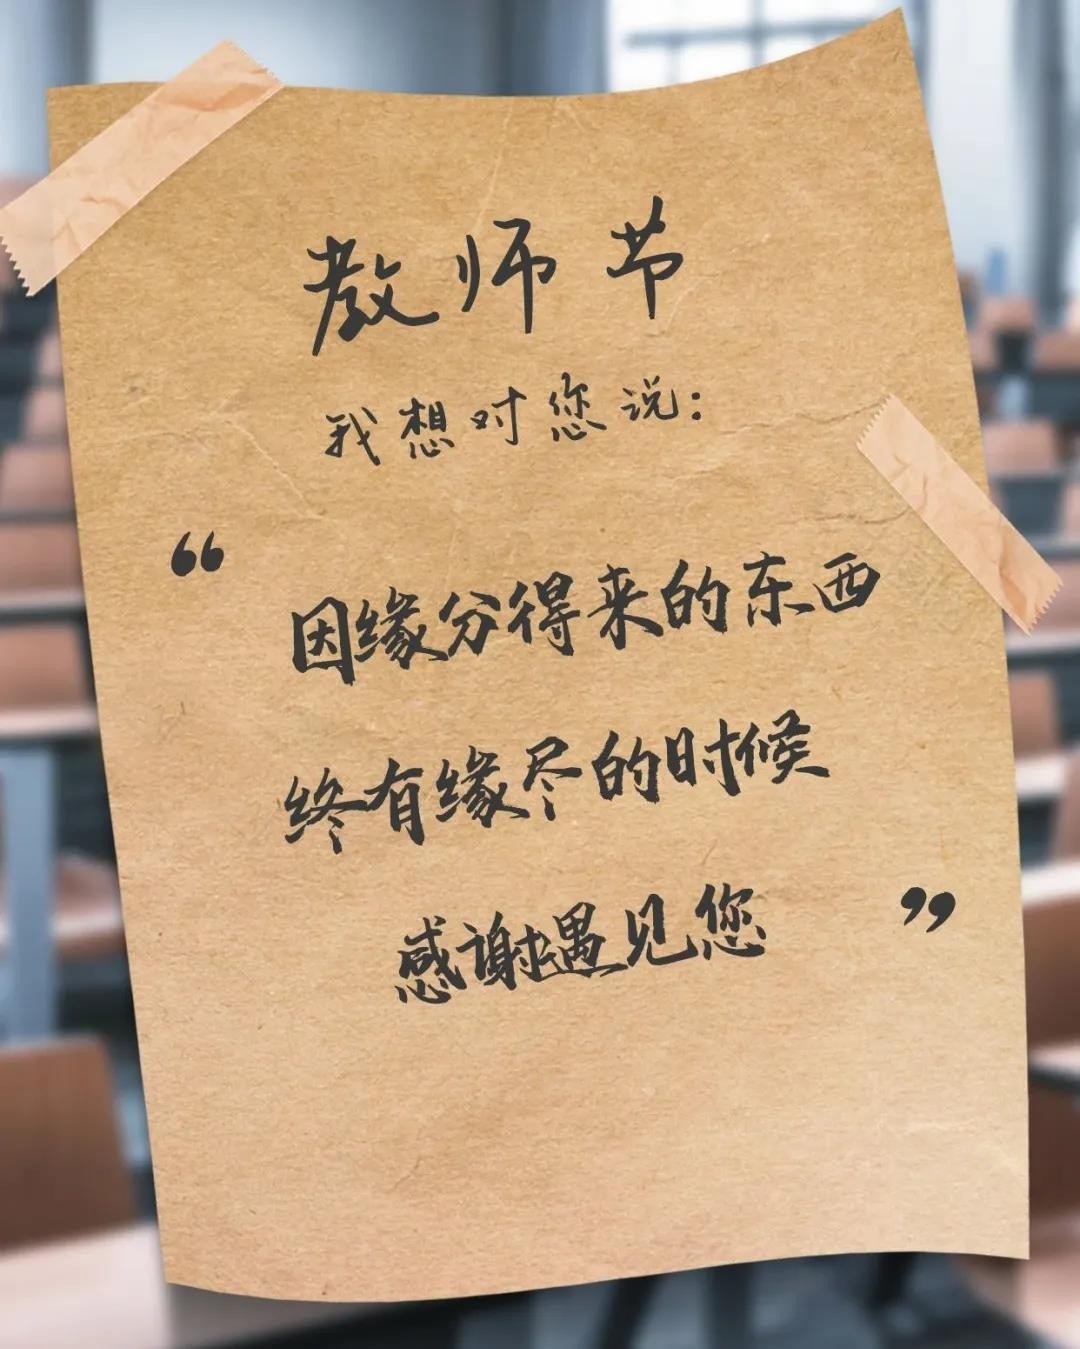 教师节
我想对您说：
“因缘分得来的东西
终有缘尽的时候
感谢遇见您”